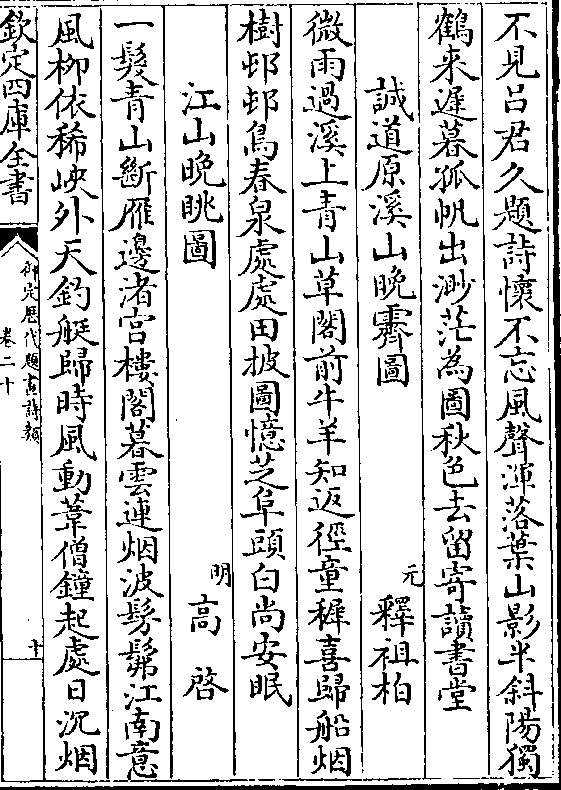 不見吕君久題詩懷不忘風聲渾落葉山影半斜陽獨
鶴来遲暮孤帆出渺茫為圖秋色去留寄讀書堂
誠道原溪山晚霽圖
元 釋祖柏
微雨過溪上青山草閣前牛羊知返徑童穉喜歸船烟
樹邨邨鳥春泉處處田披圖憶芝阜頭白尚安眠
江山晚眺圖
明 高啓
一髮青山斷雁邊渚宫樓閣暮雲連烟波髣髴江南意
風柳依稀峽外天釣艇歸時風動葦僧鐘起處日沉烟
欽定四庫全書
御定歷代題畫詩類
卷二十
十